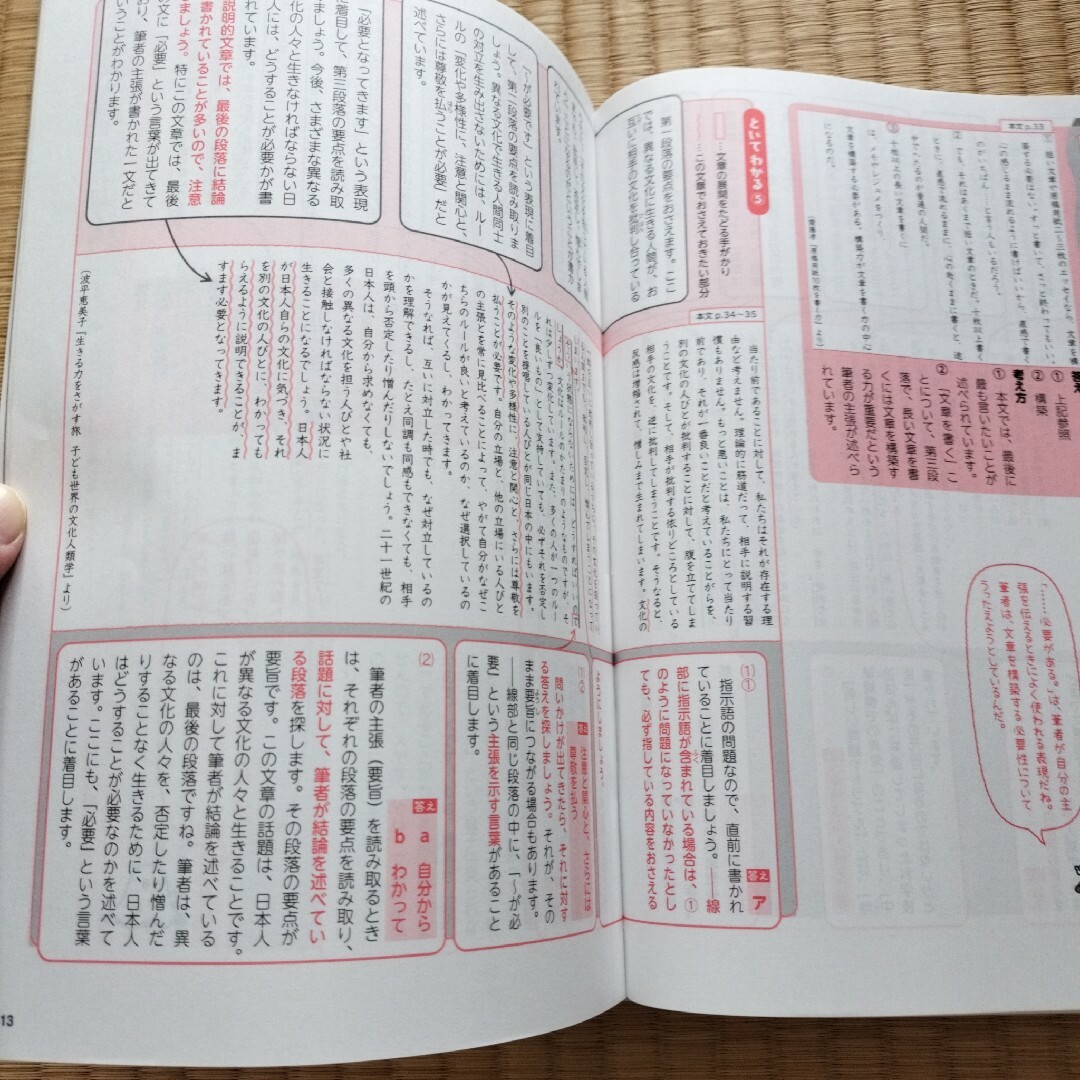 本文 p.33
短い文章や原稿用紙二〜三枚のエッセイなら、文章を構
築する必要はない。すっと書いて、さっと終わってもいい。
のがいちばん……と言う人もいるだろう。
でも、それはあくまで短い文章のときだ。十枚以上書く
ときに、直感で流れるままに、心の吹くままに書くと、迷
十枚以上の長い文章を書くに
は、メモやレジュメをつくり、
文章を構築する必要がある。構築力が文章を書く力の中心
になるのだ。
① 上記参照
② 構築
考え方
① 本文では、最後に
最も言いたいことが
述べられています。
② 「文章を書く」こ
とについて、第三段
落で、長い文章を書
くには文章を構築す
る力が重要だという
筆者の主張が述べら
れています。
「……必要がある。」は、筆者が自分の主
張を伝えるときによく使われる表現だね。
筆者は、文章を構築する必要性について
うったえようとしているんだ。
といてわかる⑤
……文章の展開をたどる手がかり
……この文章でおさえておきたい部分
本文 p.34〜35
第一段落の要点をおさえます。ここ
では、異なる文化に生きる人間が、お
互いに相手の文化を批判し合っている
当たり前であることに対して、私たちはそれが存在する理
由など考えません。理論的に筋道だって、相手に説明する習
慣もありません。もっと悪いことは、私たちにとって当たり
前であり、それが一番良いことだと考えていることがらを、
別の文化の人びとが批判することに対して、腹を立ててしま
うことです。そして、相手が批判する依りどころとしている
相手の文化を、逆に批判してしまうことです。そうなると、
反感は増幅されて、憎しみまで生まれてしまいます。文化の
(1)①
指示語の問題なので、直前に書かれ
ていることに着目しましょう。——線
部に指示語が含まれている場合は、①
のように問題になっていなかったとし
ても、必ず指している内容をおさえる
答え ア
「〜が必要です」という表現に着目
して、第二段落の要点を読み取りま
しょう。異なる文化で生きる人間同士
の対立を生み出さないためには、ルー
ルの「変化や多様性に、注意と関心と、
さらには尊敬を払うことが必要」だと
述べています。
文化はルールのかたまりのようなものですが、そ
れは少しずつ変化しています。また、多くの人が一つのルー
ルを「良いもの」として支持していても、必ずそれを否定し
別のことを提唱している人びとが同じ日本の中にもいます。
そのような変化や多様性に、注意と関心と、さらには尊敬を
払うことが必要です。自分の立場と、他の立場にいる人びと
の主張とを常に見比べることによって、やがて自分がなぜこ
ちらのルールが良いと考えているのか、なぜ選択しているの
かが見えてくるし、わかってきます。
そうなれば、互いに対立した時でも、なぜ対立しているの
かを理解できるし、たとえ同調も同感もできなくても、相手
を頭から否定したり憎んだりしないでしょう。二十一世紀の
日本人は、自分から求めなくても、
多くの異なる文化を担う人びとや社
会と接触しなければならない状況に
生きることになるでしょう。日本人
が日本人自らの文化に気づき、それ
を別の文化の人びとに、わかっても
らえるように説明できることが、ま
すます必要となってきます。
(波平恵美子「生きる力をさがす旅 子ども世界の文化人類学」より)
「必要となってきます」という表現
に着目して、第三段落の要点を読み取
りましょう。今後、さまざまな異なる
文化の人々と生きなければならない日
本人には、どうすることが必要かが書
かれています。
説明的文章では、最後の段落に結論
が書かれていることが多いので、注意
しましょう。特にこの文章では、最後
の文に「必要」という言葉が出てきて
おり、筆者の主張が書かれた一文だと
いうことがわかります。
(1)②
答え 注意と関心と、さらには
尊敬を払う
問いかけが出てきたら、それに対す
る答えを探しましょう。それが、その
まま要旨につながる場合もあります。
——線部と同じ段落の中に、「〜が必
要」という主張を示す言葉があること
に着目します。
(2)
答え a 自分から
b わかって
筆者の主張(要旨)を読み取るとき
は、それぞれの段落の要点を読み取り、
話題に対して、筆者が結論を述べてい
る段落を探します。その段落の要点が
要旨です。この文章の話題は、日本人
が異なる文化の人々と生きることです。
これに対して筆者が結論を述べている
のは、最後の段落ですね。筆者は、異
なる文化の人々を、否定したり憎んだ
りすることなく生きるために、日本人
はどうすることが必要なのかを述べて
います。ここにも、「必要」という言葉
があることに着目します。
13